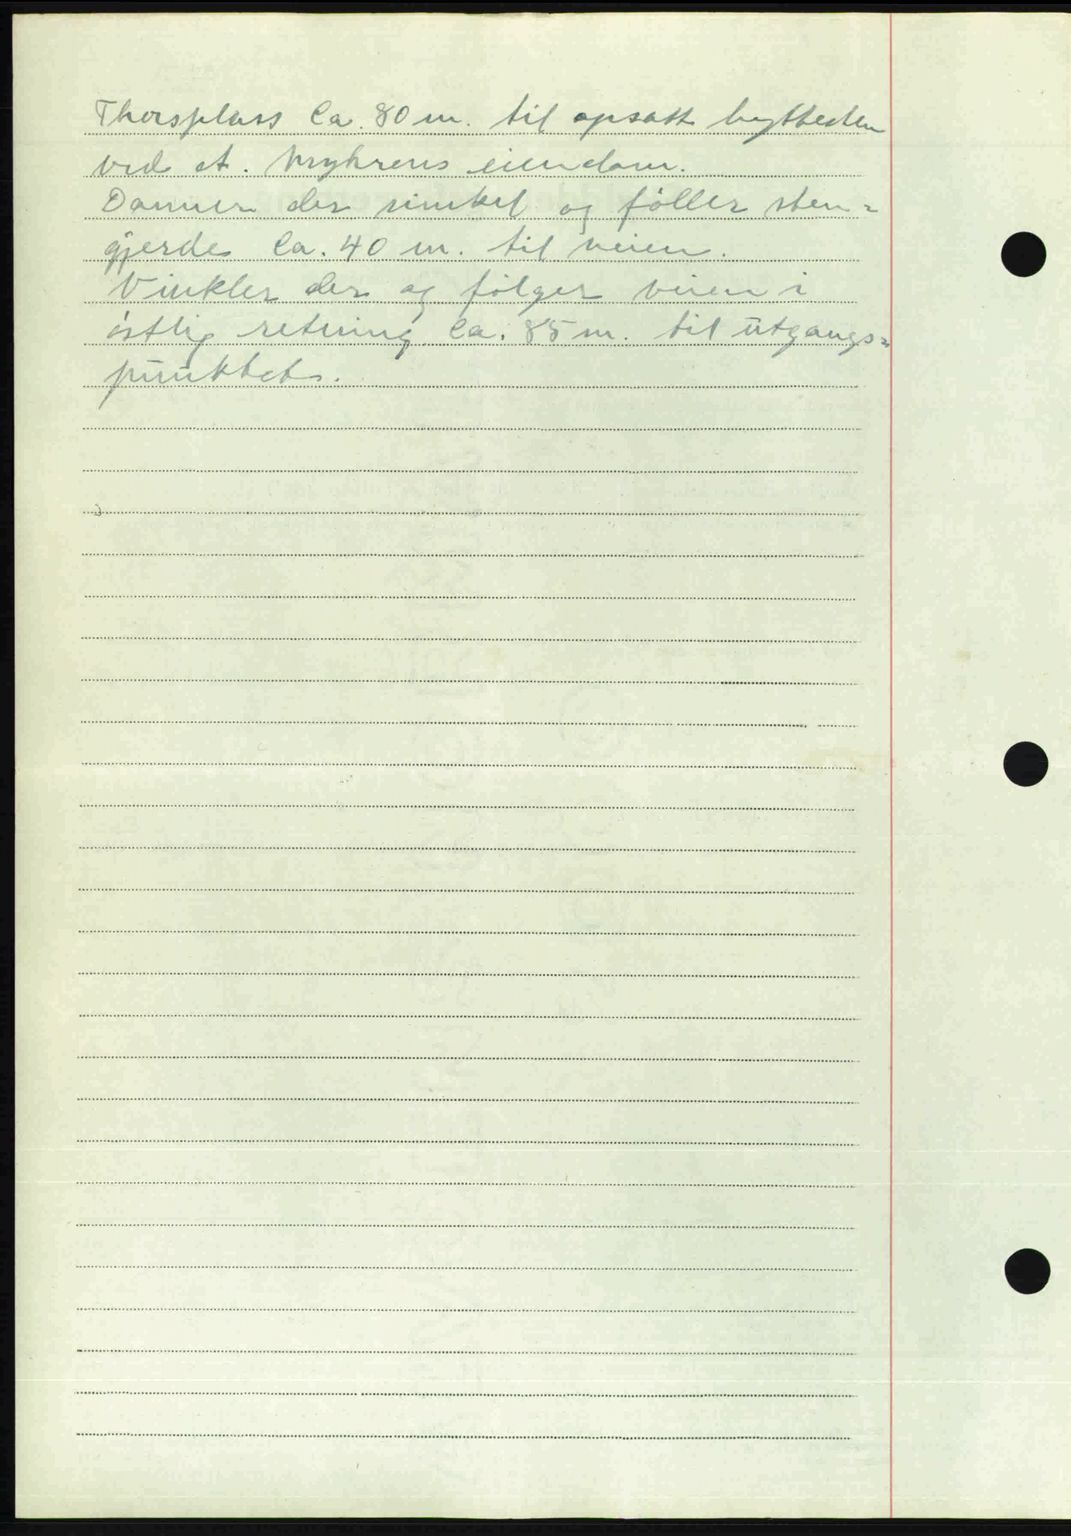 Thorsplass Ca. 80 m. til opsatt byttesten
ved A. Myhrens eiendom.
Danner der vinkel og føller sten=
gjerde Ca. 40 m. til veien.
Vinkler der og følger veien i
østlig retning Ca. 85 m. til utgangs=
punktet.